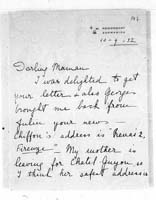 10-9-12
Darling Maman
I was delighted to get
your letter & also Georges
brought me back from
your news
Chiffon's address is
Firenze - My mother is
leaving for Chatel Guyon so
I think her safest address is